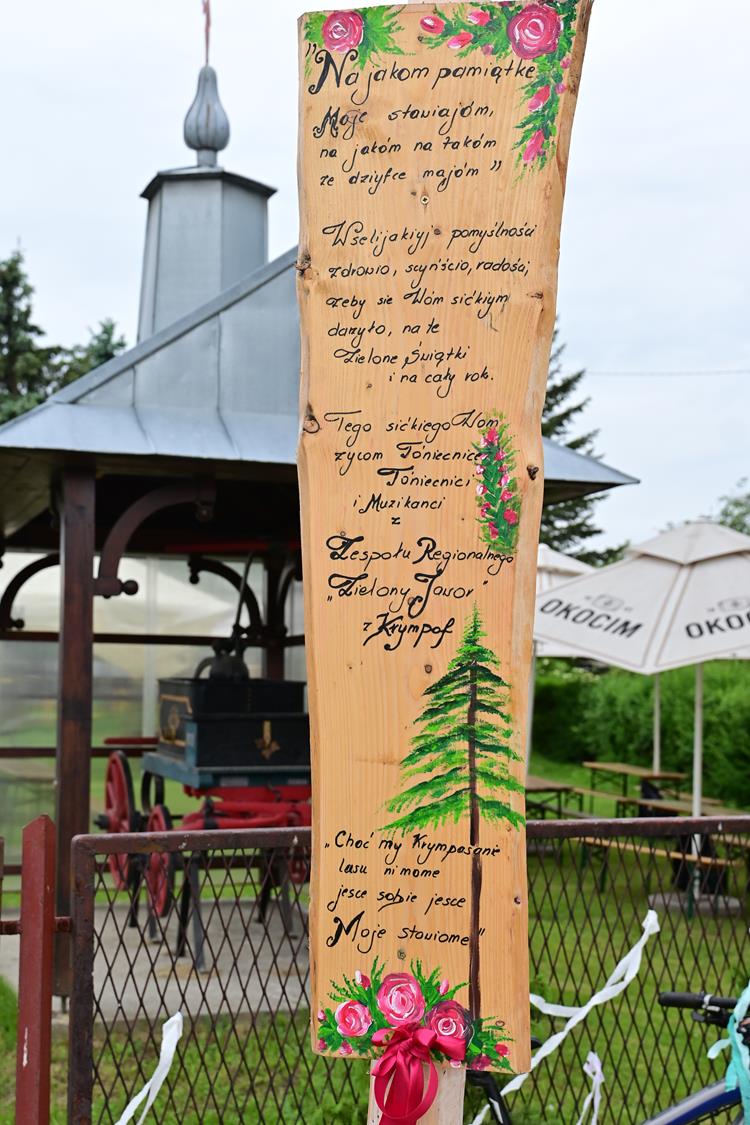 "Na jakom pamiątke
Moje stawiajóm,
na jakóm na takóm
ze dziyfce majóm"
Wselijakiyj pomyślności
zdrowio, scyńścio, radości,
zeby sie Wóm sićkiym
darzyło, na te
Zielone Świątki
i na cały rok.
Tego sićkiego Wom
zycom Tóniecnice
Tóniecnici
i Muzikanci
z
Zespołu Regionalnego
„Zielony Jawor"
z Krympof
„Choć my Krympasanie
lasu ni mome
jesce sobie jesce
Moje stawiome"
OKOCIM
OKO